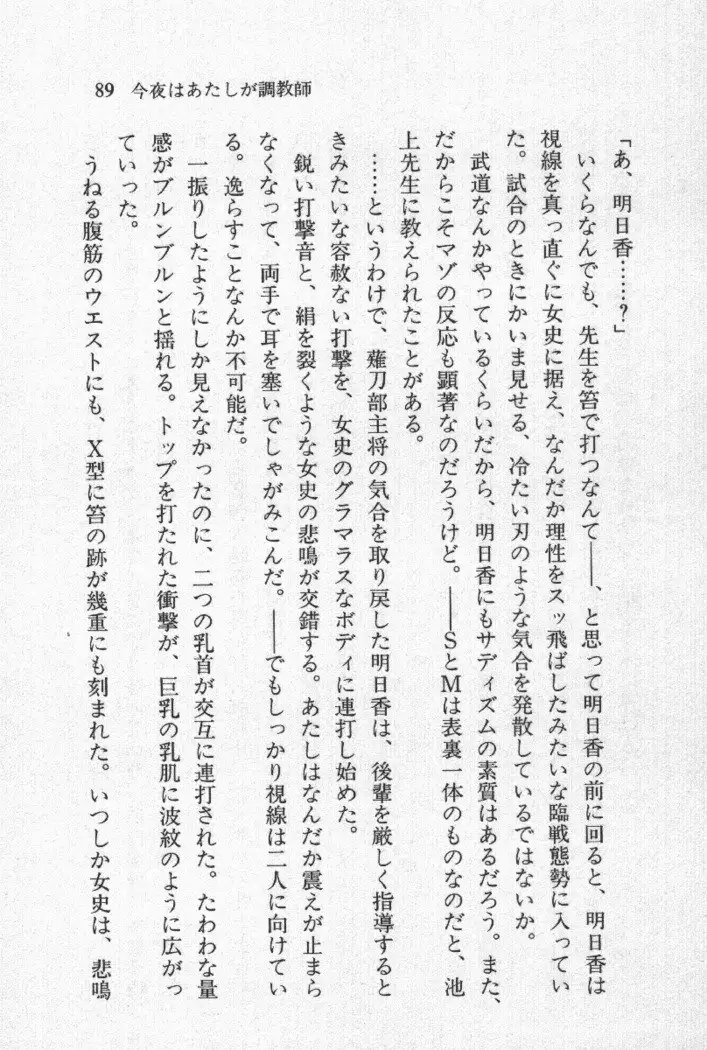 89 今夜はあたしが調教師
「あ、明日香……？」
いくらなんでも、先生を笞で打つなんて――、と思って明日香の前に回ると、明日香は
視線を真っ直ぐに女史に据え、なんだか理性をスッ飛ばしたみたいな臨戦態勢に入ってい
た。試合のときにかいま見せる、冷たい刃のような気合を発散しているではないか。
武道なんかやっているくらいだから、明日香にもサディズムの素質はあるだろう。また、
だからこそマゾの反応も顕著なのだろうけど。――SとMは表裏一体のものなのだと、池
上先生に教えられたことがある。
……というわけで、薙刀部主将の気合を取り戻した明日香は、後輩を厳しく指導すると
きみたいな容赦ない打撃を、女史のグラマラスなボディに連打し始めた。
鋭い打撃音と、絹を裂くような女史の悲鳴が交錯する。あたしはなんだか震えが止まら
なくなって、両手で耳を塞いでしゃがみこんだ。――でもしっかり視線は二人に向けてい
る。逸らすことなんか不可能だ。
一振りしたようにしか見えなかったのに、二つの乳首が交互に連打された。たわわな量
感がブルンブルンと揺れる。トップを打たれた衝撃が、巨乳の乳肌に波紋のように広がっ
ていった。
うねる腹筋のウエストにも、X型に笞の跡が幾重にも刻まれた。いつしか女史は、悲鳴